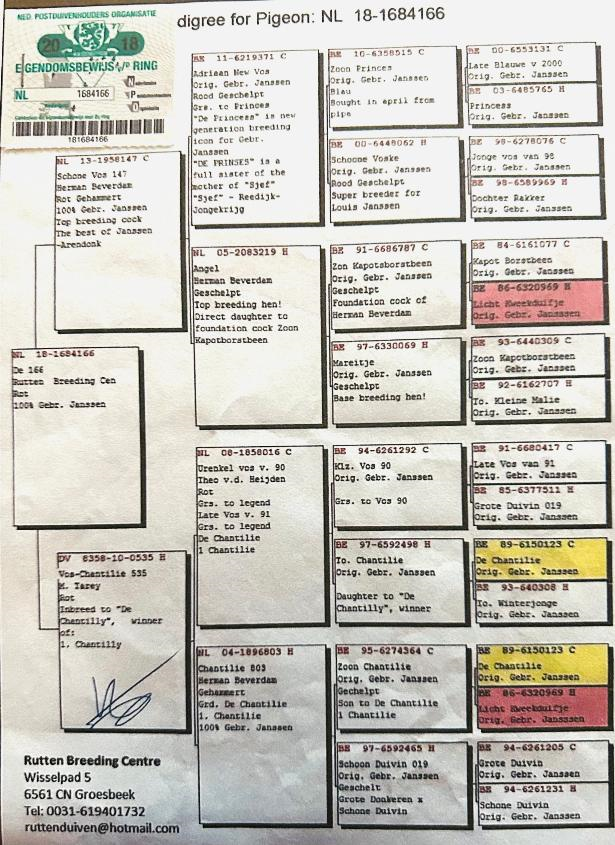 NED. POSTDUIVENHOUDERS ORGANISATIE
20 18
EIGENDOMSBEWIJS p/ RING
NL 1684166
181684166
digree for Pigeon: NL 18-1684166
NL 18-1684166
De 166
Rutten Breeding Cen
Rot
100% Gebr. Janssen
NL 13-1958147 C
Schone Vos 147
Herman Beverdam
Rot Gehammert
100% Gebr. Janssen
Top breeding cock
The best of Janssen
-Arendonk
DV 8358-10-0535 H
Vos-Chantilie 535
M. Tarey
Rot
Inbreed to "De
Chantilly", winner
of:
1. Chantilly
BE 11-6219371 C
Adriaan New Vos
Orig. Gebr. Janssen
Rood Geschelpt
Grs. to Princes
"De Princess" is new
generation breeding
icon for Gebr.
Janssen
"DE PRINSES" is a
full sister of the
mother of "Sjef"
"Sjef" - Reedijk-
Jongekrijg
NL 05-2083219 H
Angel
Herman Beverdam
Geschelpt
Top breeding hen!
Direct daughter to
foundation cock Zoon
Kapotborstbeen
NL 08-1858016 C
Urenkel vos v. 90
Theo v.d. Heijden
Rot
Grs. to legend
Late Vos v. 91
Grs. to legend
De Chantilie
1 Chantilie
NL 04-1896803 H
Chantilie 803
Herman Beverdam
Gehammert
Grd. De Chantilie
1. Chantilie
100% Gebr. Janssen
BE 10-6358515 C
Zoon Princes
Orig. Gebr. Janssen
Blau
Bought in april from
pipa
BE 00-6448062 H
Schoone Voske
Orig. Gebr. Janssen
Rood Geschelpt
Super breeder for
Louis Janssen
BE 91-6686787 C
Zon Kapotsborstbeen
Orig. Gebr. Janssen
Geschelpt
Foundation cock of
Herman Beverdam
BE 97-6330069 H
Mareitje
Orig. Gebr. Janssen
Geschelpt
Base breeding hen!
BE 94-6261292 C
Klz. Vos 90
Orig. Gebr. Janssen
Grs. to Vos 90
BE 97-6592498 H
To. Chantilie
Orig. Gebr. Janssen
Daughter to "De
Chantilly", winner
BE 95-6274364 C
Zoon Chantilie
Orig. Gebr. Janssen
Gechelpt
Son to De Chantilie
1 Chantilie
BE 97-6592465 H
Schoon Duivin 019
Orig. Gebr. Janssen
Geschelt
Grote Donkeren x
Schone Duivin
BE 00-6553131 C
Late Blauwe v 2000
Orig. Gebr. Janssen
BE 03-6485765 H
Princess
Orig. Gebr. Janssen
BE 98-6278076 C
Jonge vos van 98
Orig. Gebr. Janssen
BE 98-6589969 H
Dochter Rakker
Orig. Gebr. Janssen
BE 84-6161077 C
Kapot Borstbeen
Orig. Gebr. Janssen
BE 86-6320969 H
Licht Kweekduifje
Orig. Gebr. Janssen
BE 93-6440309 C
Zoon Kapotborstbeen
Orig. Gebr. Janssen
BE 92-6162707 H
To. Kleine Malie
Orig. Gebr. Janssen
BE 91-6680417 C
Late Vos van 91
Orig. Gebr. Janssen
BE 85-6377511 H
Grote Duivin 019
Orig. Gebr. Janssen
BE 89-6150123 C
De Chantilie
Orig. Gebr. Janssen
BE 93-640308 H
To. Winterjonge
Orig. Gebr. Janssen
BE 89-6150123 C
De Chantilie
Orig. Gebr. Janssen
BE 86-6320969 H
Licht Kweekduifje
Orig. Gebr. Janssen
BE 94-6261205 C
Grote Duivin
Orig. Gebr. Janssen
BE 94-6261231 H
Schone Duivin
Orig. Gebr. Janssen
Rutten Breeding Centre
Wisselpad 5
6561 CN Groesbeek
Tel: 0031-619401732
ruttenduiven@hotmail.com